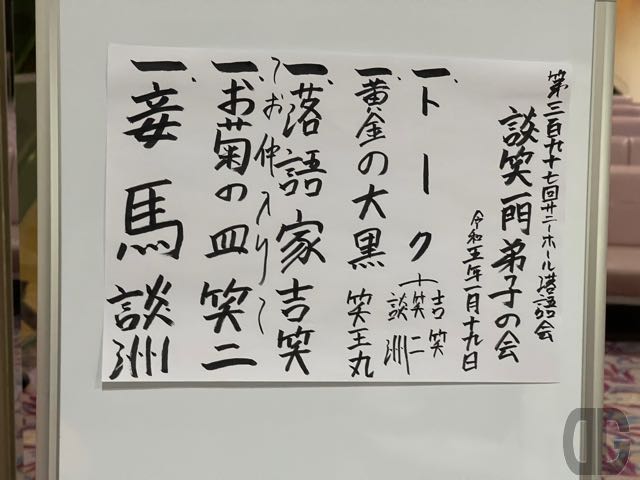 第三百九十七回サニーホール落語会
談笑一門弟子の会
令和五年一月十九日
一、トーク
吉笑
笑二
談洲
一、黄金の大黒 笑王丸
一、落語家 吉笑
〜お仲入り〜
一、お菊の皿 笑二
一、妾馬 談洲
DG